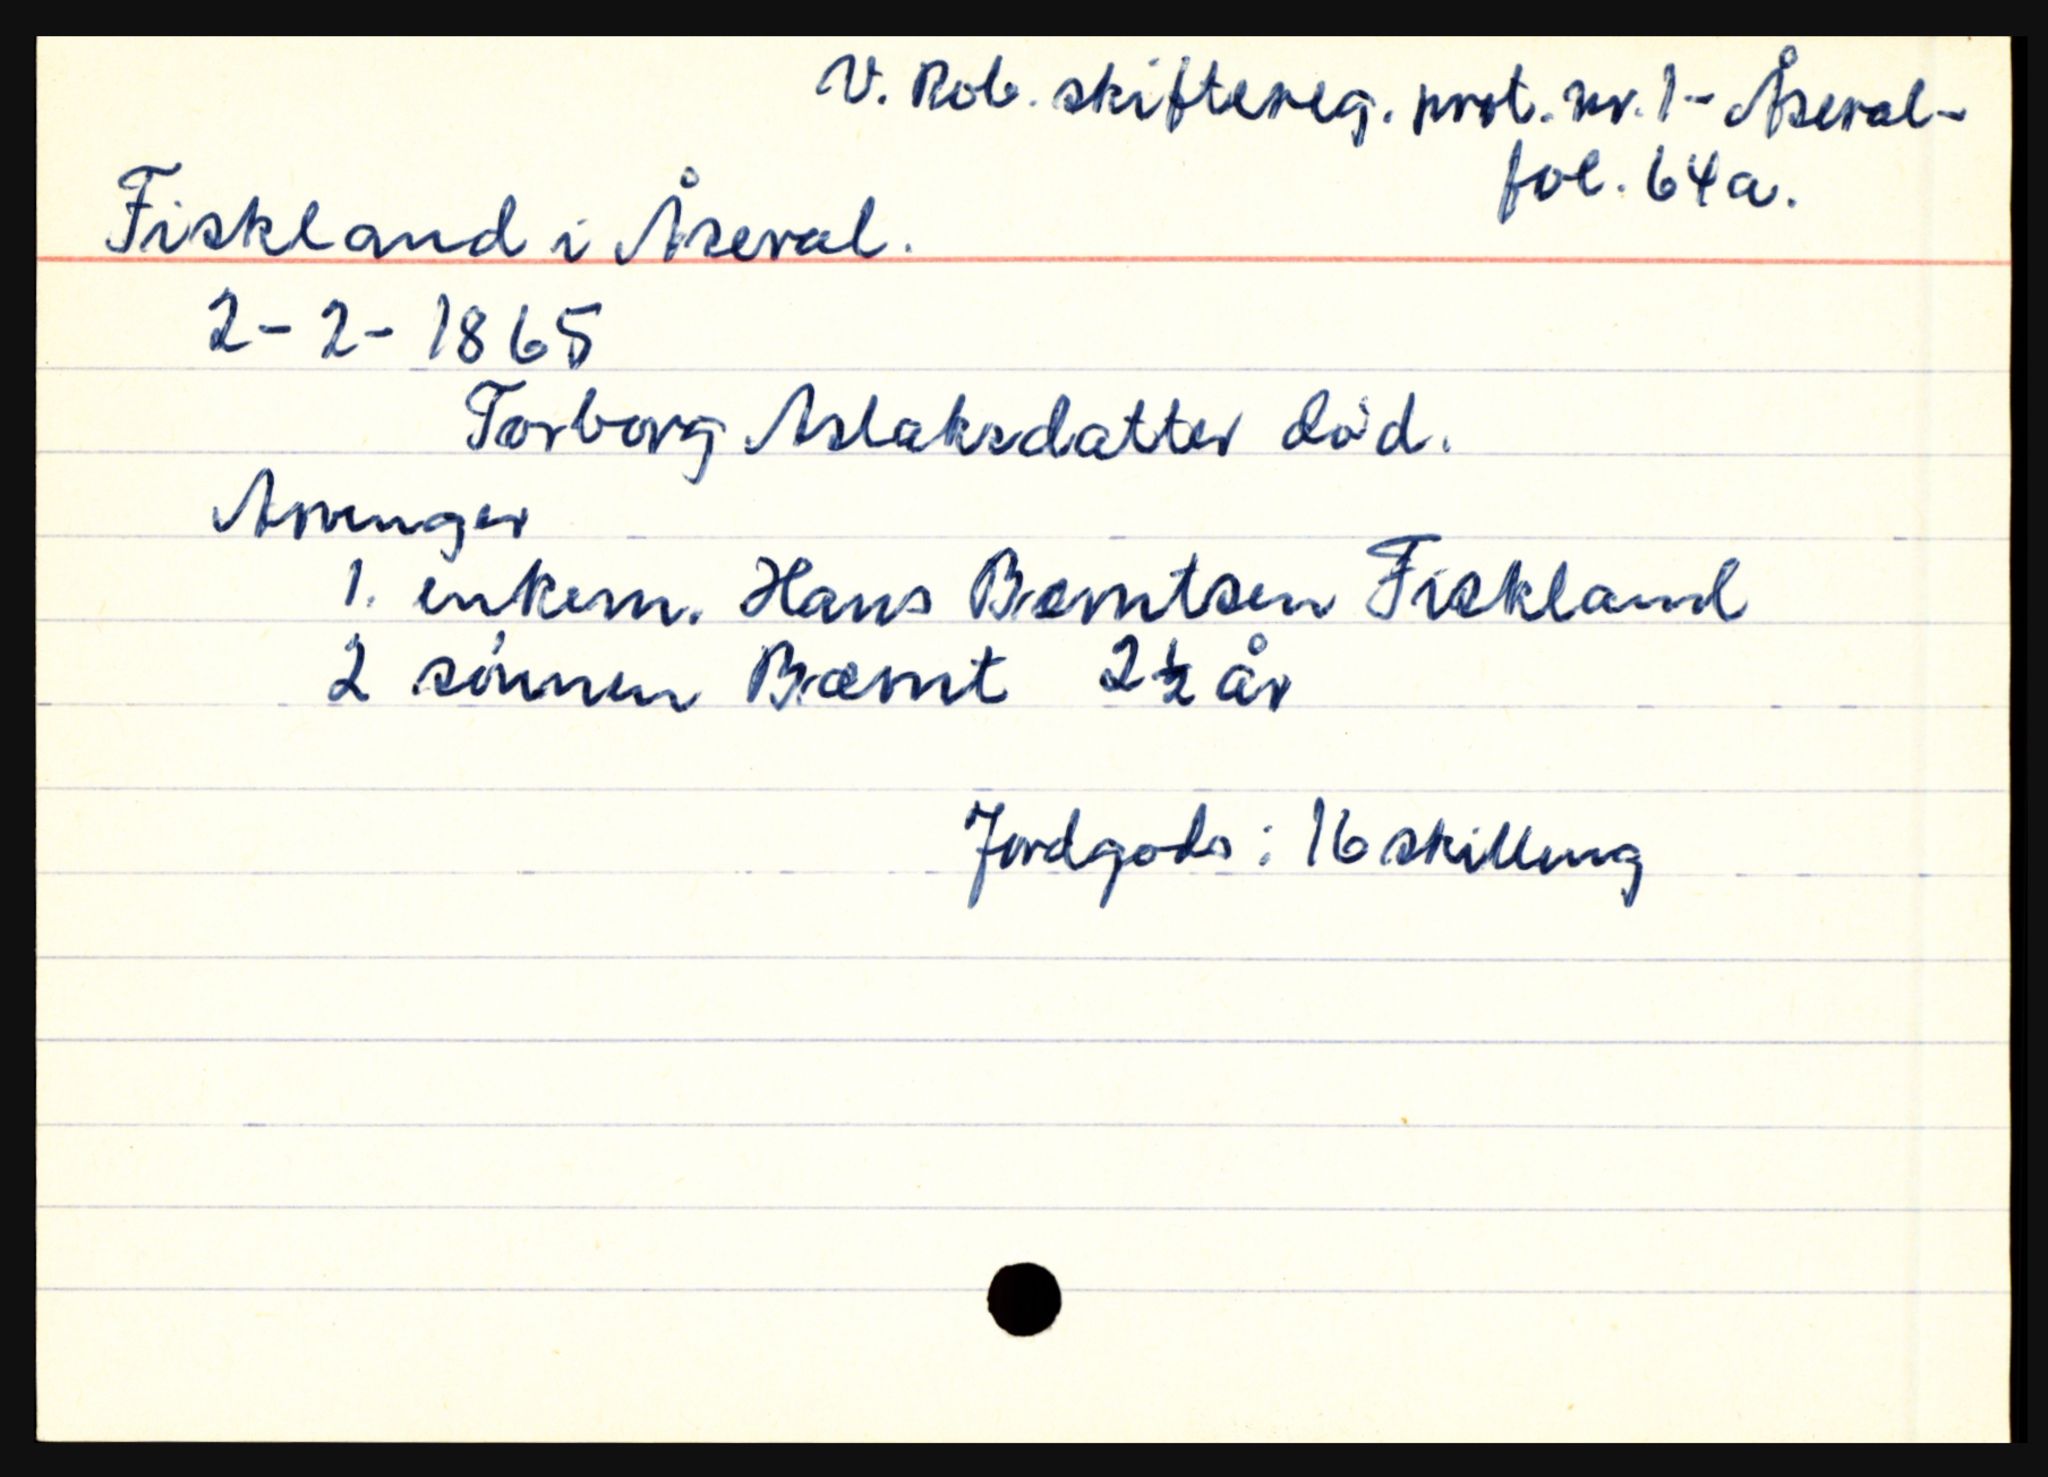 V. Rob. skiftereg. prot. nr. 1 - Åseral -
fol. 64a.
Fiskland i Åseral.
2 - 2 - 1865
Torborg Aslaksdatter død.
Arvenger
1. enkem. Hans Bærntsen Fiskland
2 sønnen Bærnt 2 ½ år
Jordgods: 16 skilling